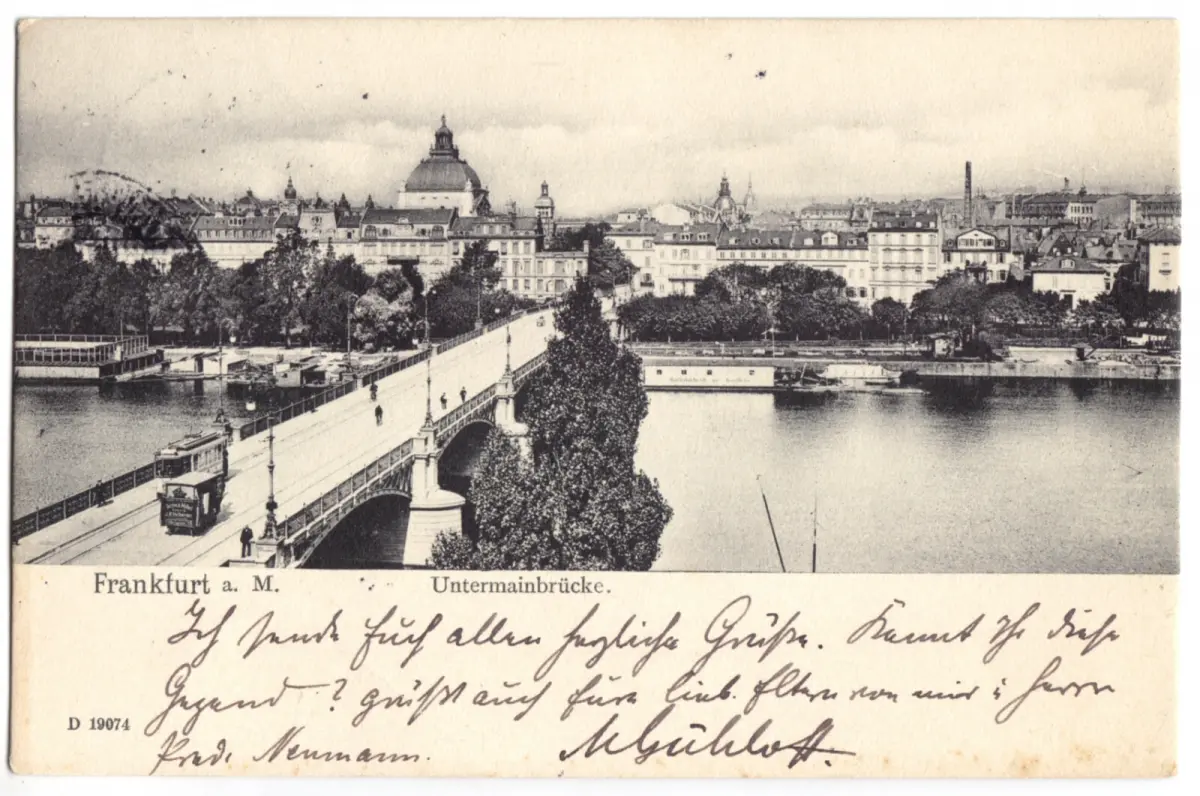 Frankfurt a. M.
Untermainbrücke.
Ich sende Euch allen herzliche Grüße. Kennt Ihr diese
Gegend? grüßt auch Eure lieb. Eltern von mir u Herrn
D 19074
Pred. Neumann.
MGühloff.